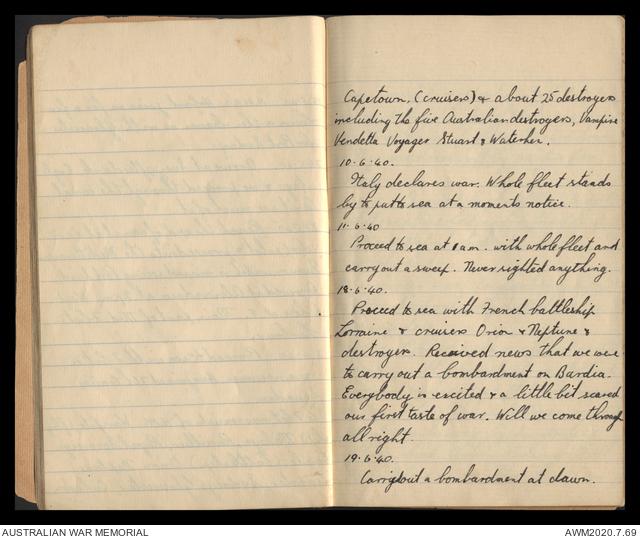 Capetown, (cruisers) & about 25 destroyers
including the five Australian destroyers, Vampire
Vendetta Voyager Stuart & Waterhen.
10.6.40.
Italy declares war. Whole fleet stands
by to put to sea at a moments notice.
11.6.40
Proceed to sea at 1 am. with whole fleet and
carry out a sweep. Never sighted anything.
18.6.40.
Proceed to sea with French battleship
Lorraine & cruisers Orion & Neptune &
destroyers. Received news that we were
to carry out a bombardment on Bardia.
Everybody is excited & a little bit scared
our first taste of war. Will we come through
all right.
19.6.40.
Carried out a bombardment at dawn.
AUSTRALIAN WAR MEMORIAL
AWM2020.7.69